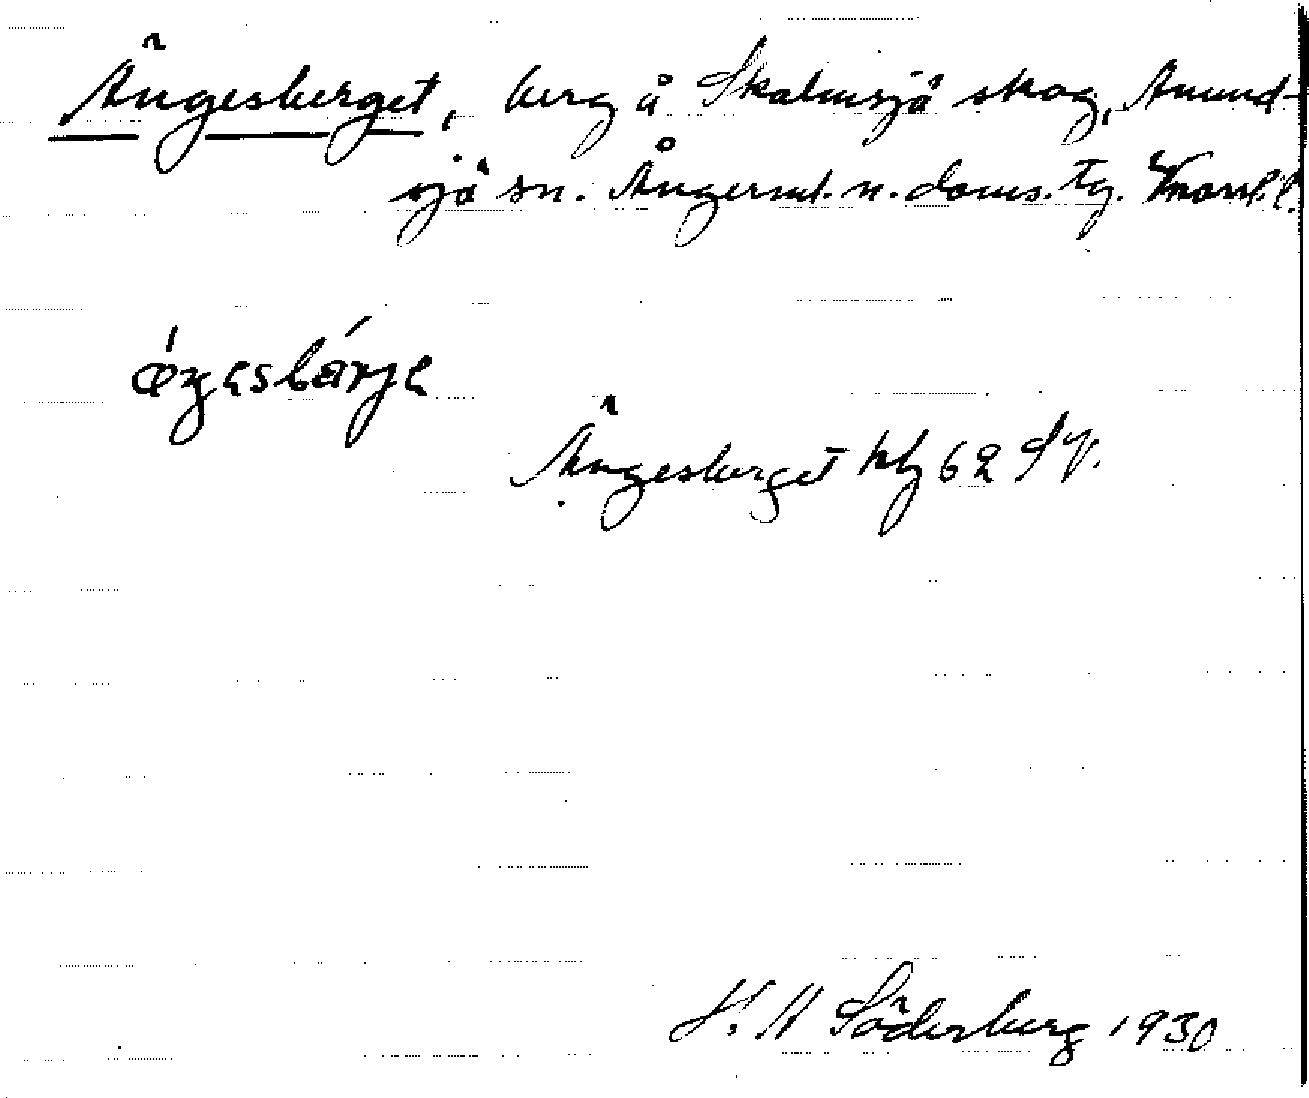 Ängesberget, berg å Skalmsjö skog, Anund-
sjö sn. Ångerml. n. doms. tg. Vnorrl. l.
Ängesberget hbl 62 SV.
H. A Söderberg 1930